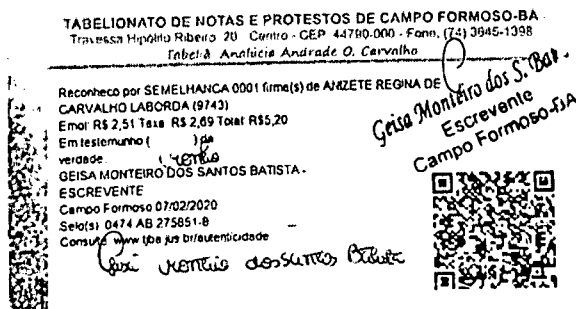 TABELIONATO DE NOTAS E PROTESTOS DE CAMPO FORMOSO-BA
Travessa Hipólito Ribeiro 20 Centro - CEP 44790-000 - Fone. (74) 3645-1398
Tabeliã Analúcia Andrade O. Carvalho
Reconheço por SEMELHANÇA 0001 firma(s) de ANIZETE REGINA DE
CARVALHO LABORDA (9743)
Emol R$ 2,51 Taxa R$ 2,69 Total R$5,20
Em testemunho ( ) da
verdade.
GEISA MONTEIRO DOS SANTOS BATISTA -
ESCREVENTE
Campo Formoso 07/02/2020
Selo(s) 0474 AB 275851-8
Consulte www tjba jus br/autenticidade
Geisa Monteiro dos S. Bat.
Escrevente
Campo Formoso-BA
Monteiro dos Santos Batista